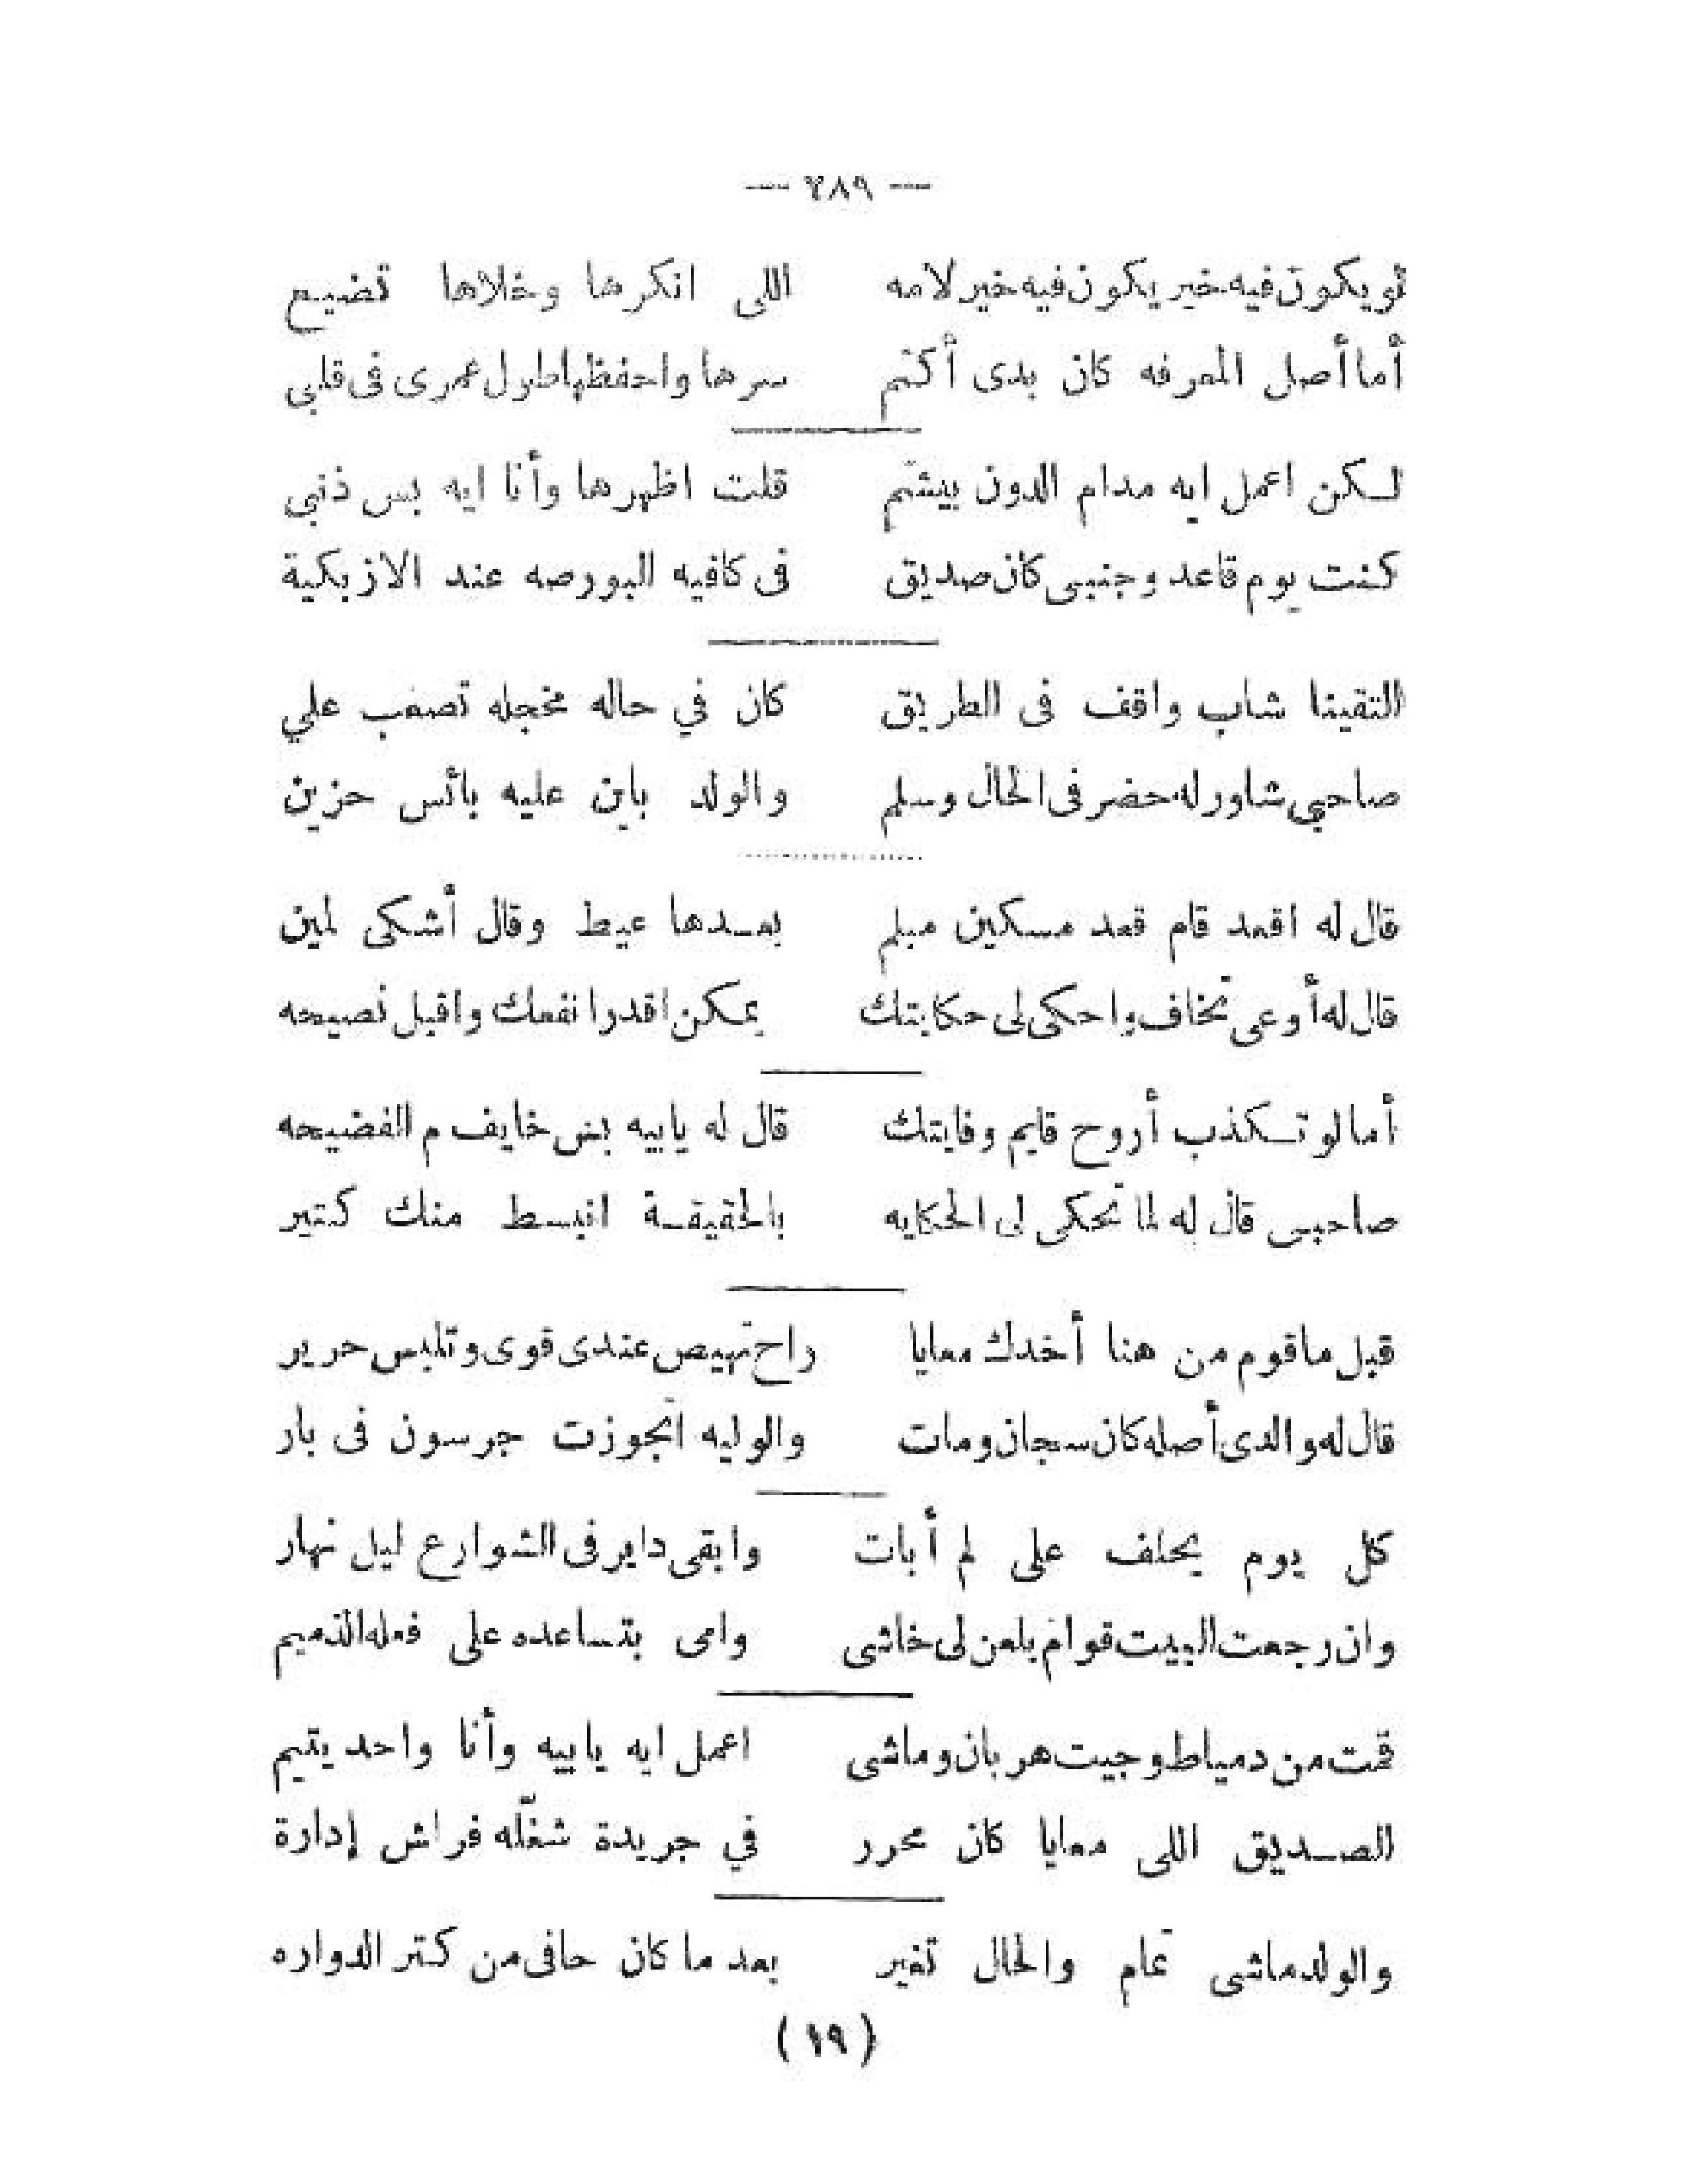 — ٢٨٩ —
لو يكون فيه خير يكون فيه خير لامه اللى انكرها وخلاها تضيع
أما أصل المعرفه كان بدى أكتم سرها واحفظها طول عمرى فى قلبى
لكن اعمل ايه مدام الدون بيشتم قلت اظهرها وأنا ايه بس ذنبى
كنت يوم قاعد وجنبى كان صديق فى كافيه البورصه عند الازبكية
التقينا شاب واقف فى الطريق كان في حاله مخجله تصعب علي
صاحبى شاور له حضر فى الحال وسلم والولد باين عليه بائس حزين
قال له اقعد قام قعد مسكين مبلم بعدها عيط وقال أشكى لمين
قال له أوعى تخاف واحكى لى حكايتك يمكن اقدر انفعك واقبل نصيحه
أما لو تكذب أروح قايم وفايتك قال له يابيه بس خايف م الفضيحه
صاحبى قال له لما تحكى لى الحكايه بالحقيقة انبسط منك كتير
قبل ماقوم من هنا أخدك معايا راح تهيص عندى قوى وتلبس حرير
قال له والدى أصله كان سجان ومات والوليه اتجوزت جرسون فى بار
كل يوم يحلف على لم أبات وابقى داير فى الشوارع ليل نهار
وان رجعت البيت قوام بلعن لى خاشى وامى بتساعده على فعله الذميم
قمت من دمياط وجيت هربان وماشى اعمل ايه يابيه وأنا واحد يتيم
الصديق اللى معايا كان محرر في جريدة شغّله فراش إدارة
والولد ماشى تمام والحال تغير بعد ما كان حافى من كتر الدواره
(١٩)